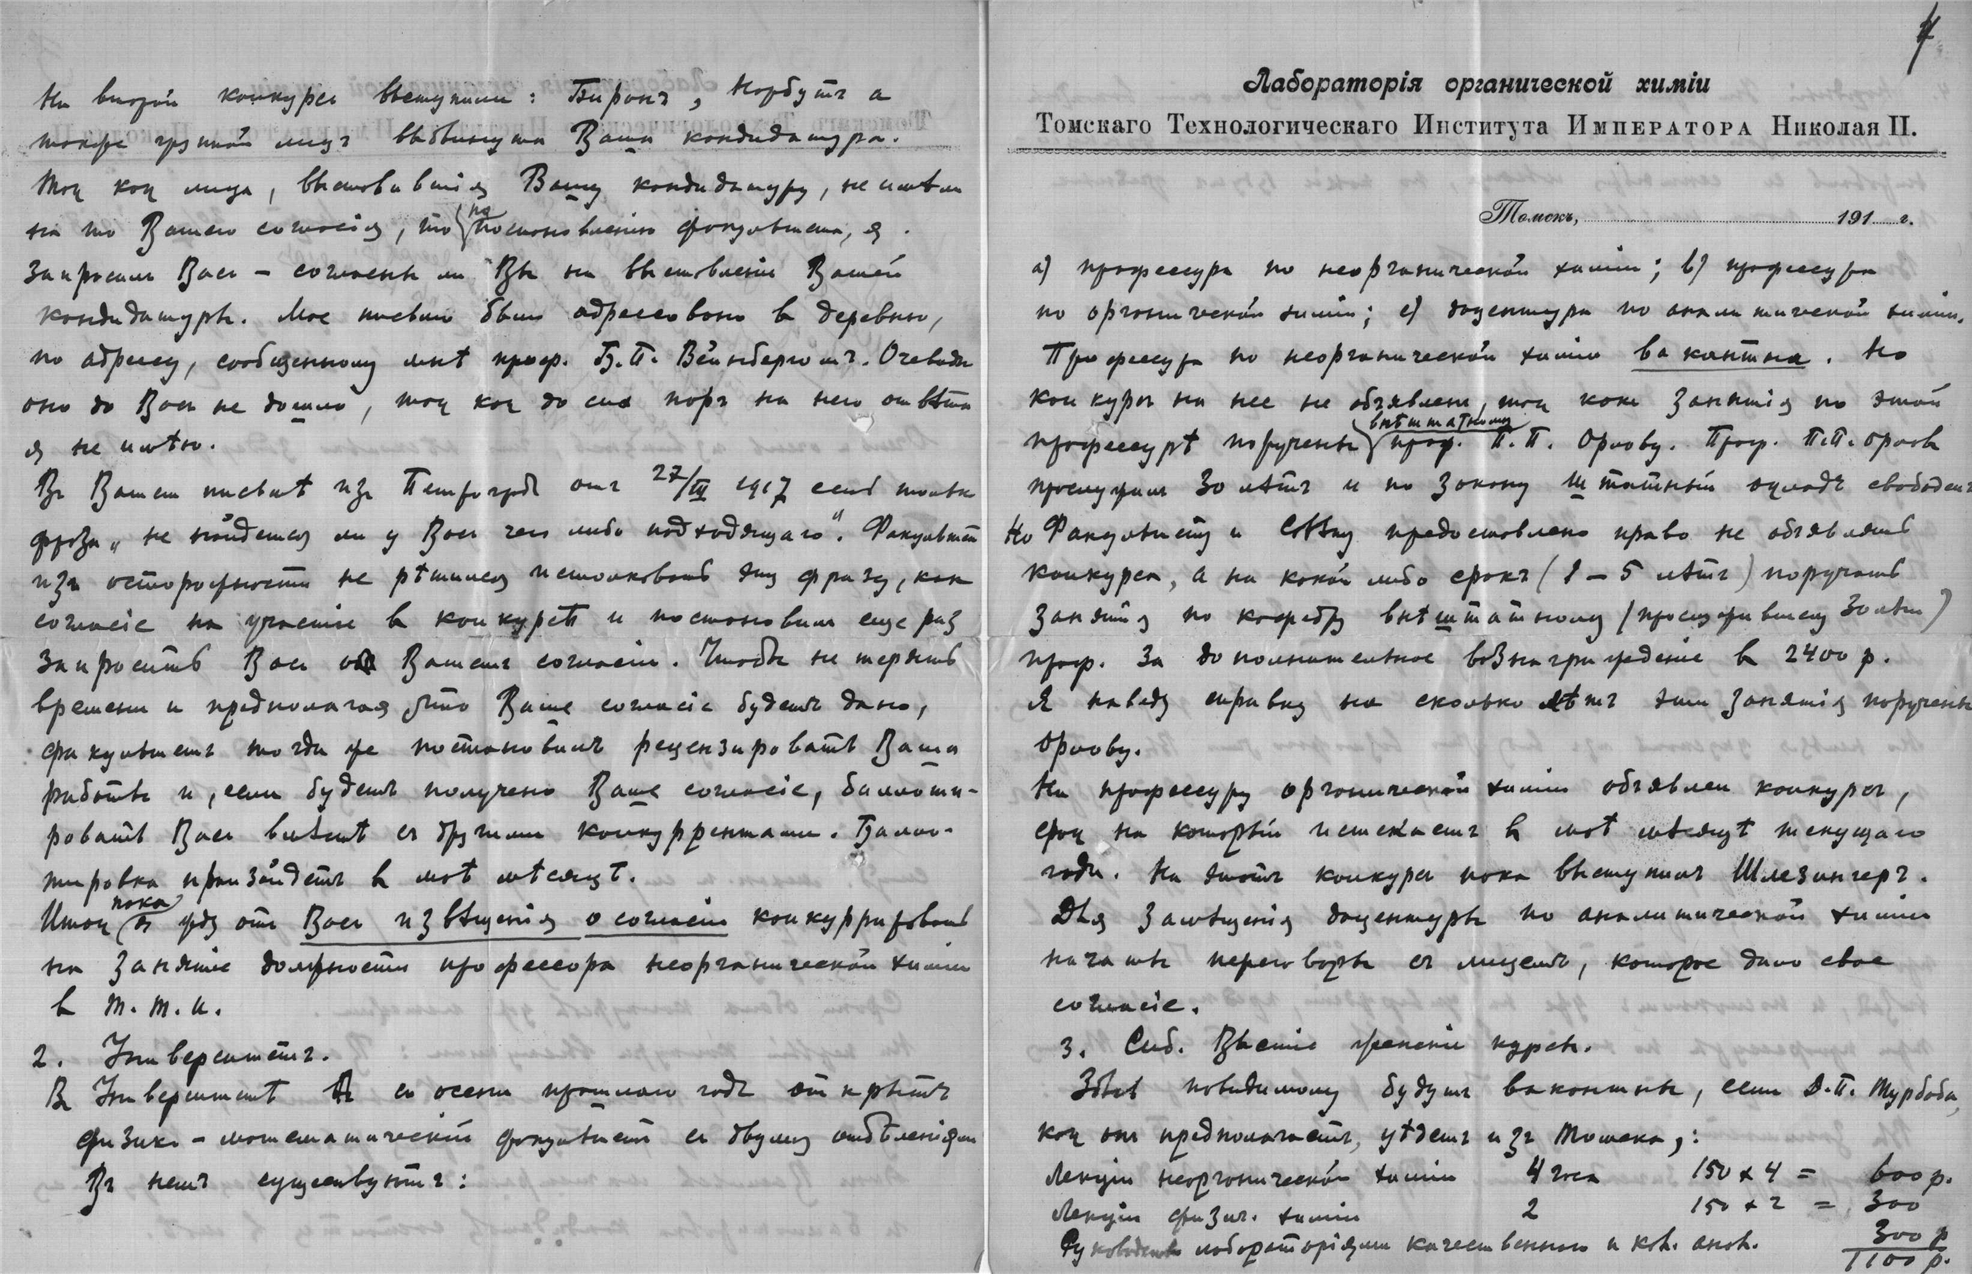 На второй конкурсъ выступили: Биронъ, Норбутъ а
также группой лицъ выдвинута Ваша кандидатура.
Такъ какъ лица, выставившія Вашу кандидатуру, не имѣли
на то Вашего согласія, то по постановленію факультета, я
запросилъ Васъ – согласны ли Вы на выставленіе Вашей
кандидатуры. Мое письмо было адресовано въ деревню,
по адресу, сообщенному мнѣ проф. Б. П. Вейнбергомъ. Очевидно
оно до Васъ не дошло, такъ какъ до сихъ поръ на него отвѣта
я не имѣю.
Въ Вашемъ письмѣ изъ Петрограда отъ 27/III 1917 есть только
фраза „не найдется ли у Васъ чего либо подходящаго“. Факультетъ
изъ осторожности не рѣшился истолковать эту фразу, какъ
согласіе на участіе въ конкурсѣ и постановилъ еще разъ
запросить Васъ объ Вашемъ согласіи. Чтобы не терять
времени и предполагая, что Ваше согласіе будетъ дано,
факультетъ тогда же постановилъ рецензировать Ваши
работы и, если будетъ получено Ваше согласіе, баллоти-
ровать Васъ вмѣстѣ съ другими конкуррентами. Балло-
тировка произойдетъ въ маѣ мѣсяцѣ.
Итакъ пока я жду отъ Васъ извѣщенія о согласіи конкуррировать
на занятіе должности профессора неорганической химіи
въ Т. Т. И.
2. Университетъ.
Въ Университетѣ съ осени прошлаго года открытъ
физико-математическій факультетъ съ двумя отдѣленіями
Въ немъ существуютъ:
4
Лабораторія органической химіи
Томскаго Технологическаго Института Императора Николая II.
Томскъ, 191 г.
а) профессура по неорганической химіи; в) профессура
по органической химіи; с) доцентура по аналитической химіи.
Профессура по неорганической химіи вакантна. Но
конкурсъ на нее не объявленъ, такъ какъ занятія по этой
профессурѣ поручены внѣштатному проф. П. П. Орлову. Проф. П. П. Орловъ
прослужилъ 30 лѣтъ и по закону штатный окладъ свободенъ
Но Факультету и Совѣту предоставлено право не объявлять
конкурса, а на какой либо срокъ (1 – 5 лѣтъ) поручать
занятія по кафедрѣ внѣштатному (прослужившему 30 лѣтъ)
проф. за дополнительное вознагражденіе въ 2400 р.
Я наведу справку на сколько лѣтъ эти занятія поручены
Орлову.
На профессуру органической химіи объявленъ конкурсъ,
срокъ на который истекаетъ въ маѣ мѣсяцѣ текущаго
года. На этотъ конкурсъ пока выступилъ Шлезингеръ.
Для замѣщенія доцентуры по аналитической химіи
начаты переговоры съ лицемъ, которое дало свое
согласіе.
3. Сиб. Высшіе женскіе курсы.
Здѣсь повидимому будутъ вакантны, если Д. П. Турбаба,
какъ онъ предполагаетъ, уѣдетъ изъ Томска,:
Лекціи неорганической химіи 4 часа 150 x 4 = 600 р.
Лекціи физич. химіи 2 150 x 2 = 300
Руководство лабораторіями качественнаго и кол. анал. 300 р
1100 р.